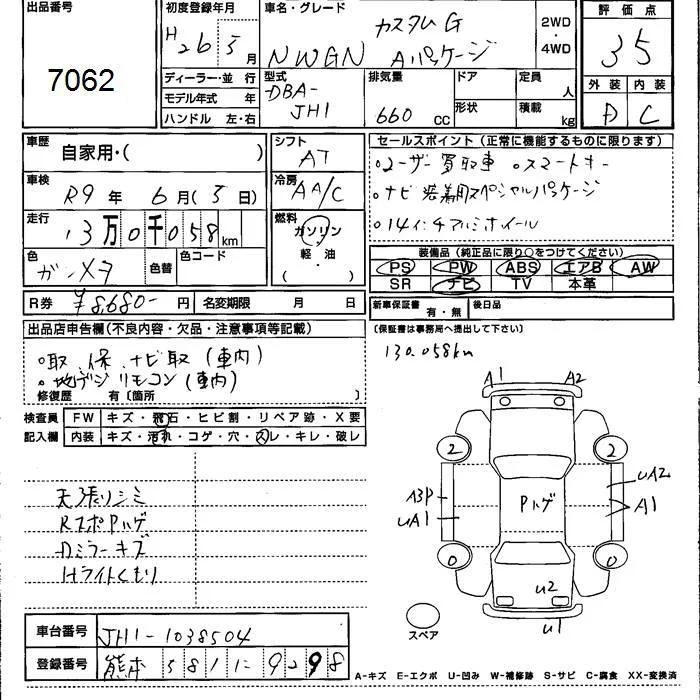 出品番号
7062
初度登録年月
H26 5月
車名・グレード
カスタムG
NWGN Aパッケージ
2WD
・
4WD
評価点
3.5
外装 内装
D C
ディーラー・並 行
モデル年式 年
ハンドル 左・右
型式
DBA-
JH1
排気量
660 cc
ドア
形状
定員
人
積載
kg
車歴
自家用・( )
シフト
AT
車検
R9年 6月(5日)
冷房
AA/C
走行
13万0千058km
燃料
ガソリン
・
軽 油
・
( )
色
ガンメタ
色替
色コード
R券 ¥8,680-円 名変期限 月 日
セールスポイント(正常に機能するものに限ります)
○ユーザー買取車 ○スマートキー
○ナビ装着用スペシャルパッケージ
○14インチアルミホイール
装備品(純正品に限り○をつけてください)
PS PW ABS エアB AW
SR ナビ TV 本革
新車保証書 有・無 後日品
(保証書は事務局へ提出して下さい)
130,058km
出品店申告欄(不良内容・欠品・注意事項等記載)
○取、保、ナビ取(車内)
○地デジリモコン(車内)
修復歴 有〔箇所 〕
検査員 FW キズ・飛石・ヒビ割・リペア跡・X要
記入欄 内装 キズ・汚れ・コゲ・穴・スレ・キレ・破レ
天張りシミ
RスポPハゲ
Dミラーキズ
Hライトくもり
A1 A2
2 2
A3P Pハゲ UA2
UA1 A1
0 0
U2
U1
スペア
車台番号 JH1-1038504
登録番号 熊本 581 に 9298
A-キズ E-エクボ U-凹み W-補修跡 S-サビ C-腐食 XX-変換済